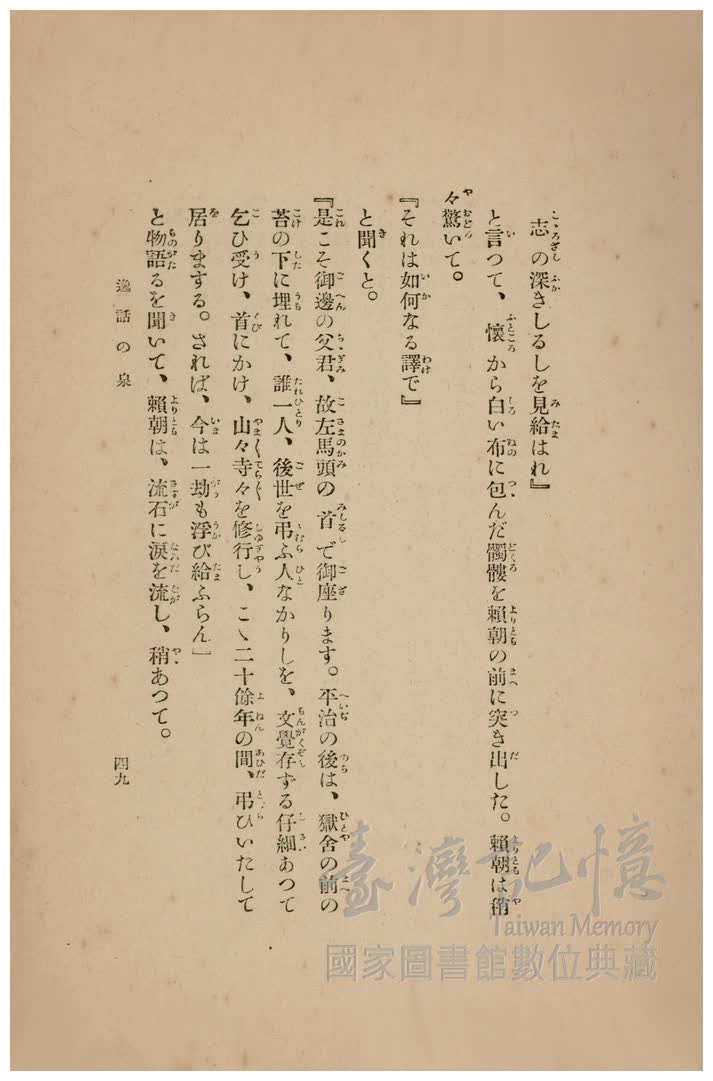 志の深きしるしを見給はれ』
と言つて、懐から白い布に包んだ髑髏を賴朝の前に突き出した。賴朝は稍
々驚いて。
『それは如何なる譯で』
と聞くと。
『是こそ御邊の父君、故左馬頭の首で御座ります。平治の後は、獄舍の前の
苔の下に埋れて、誰一人、後世を弔ふ人なかりしを、文覺存ずる仔細あつて
乞ひ受け、首にかけ、山々寺々を修行し、こゝ二十餘年の間、弔ひいたして
居りまする。されば、今は一劫も浮び給ふらん』
と物語るを聞いて、賴朝は、流石に涙を流し、稍あつて。
逸話の泉
四九
臺灣記憶
Taiwan Memory
國家圖書館數位典藏